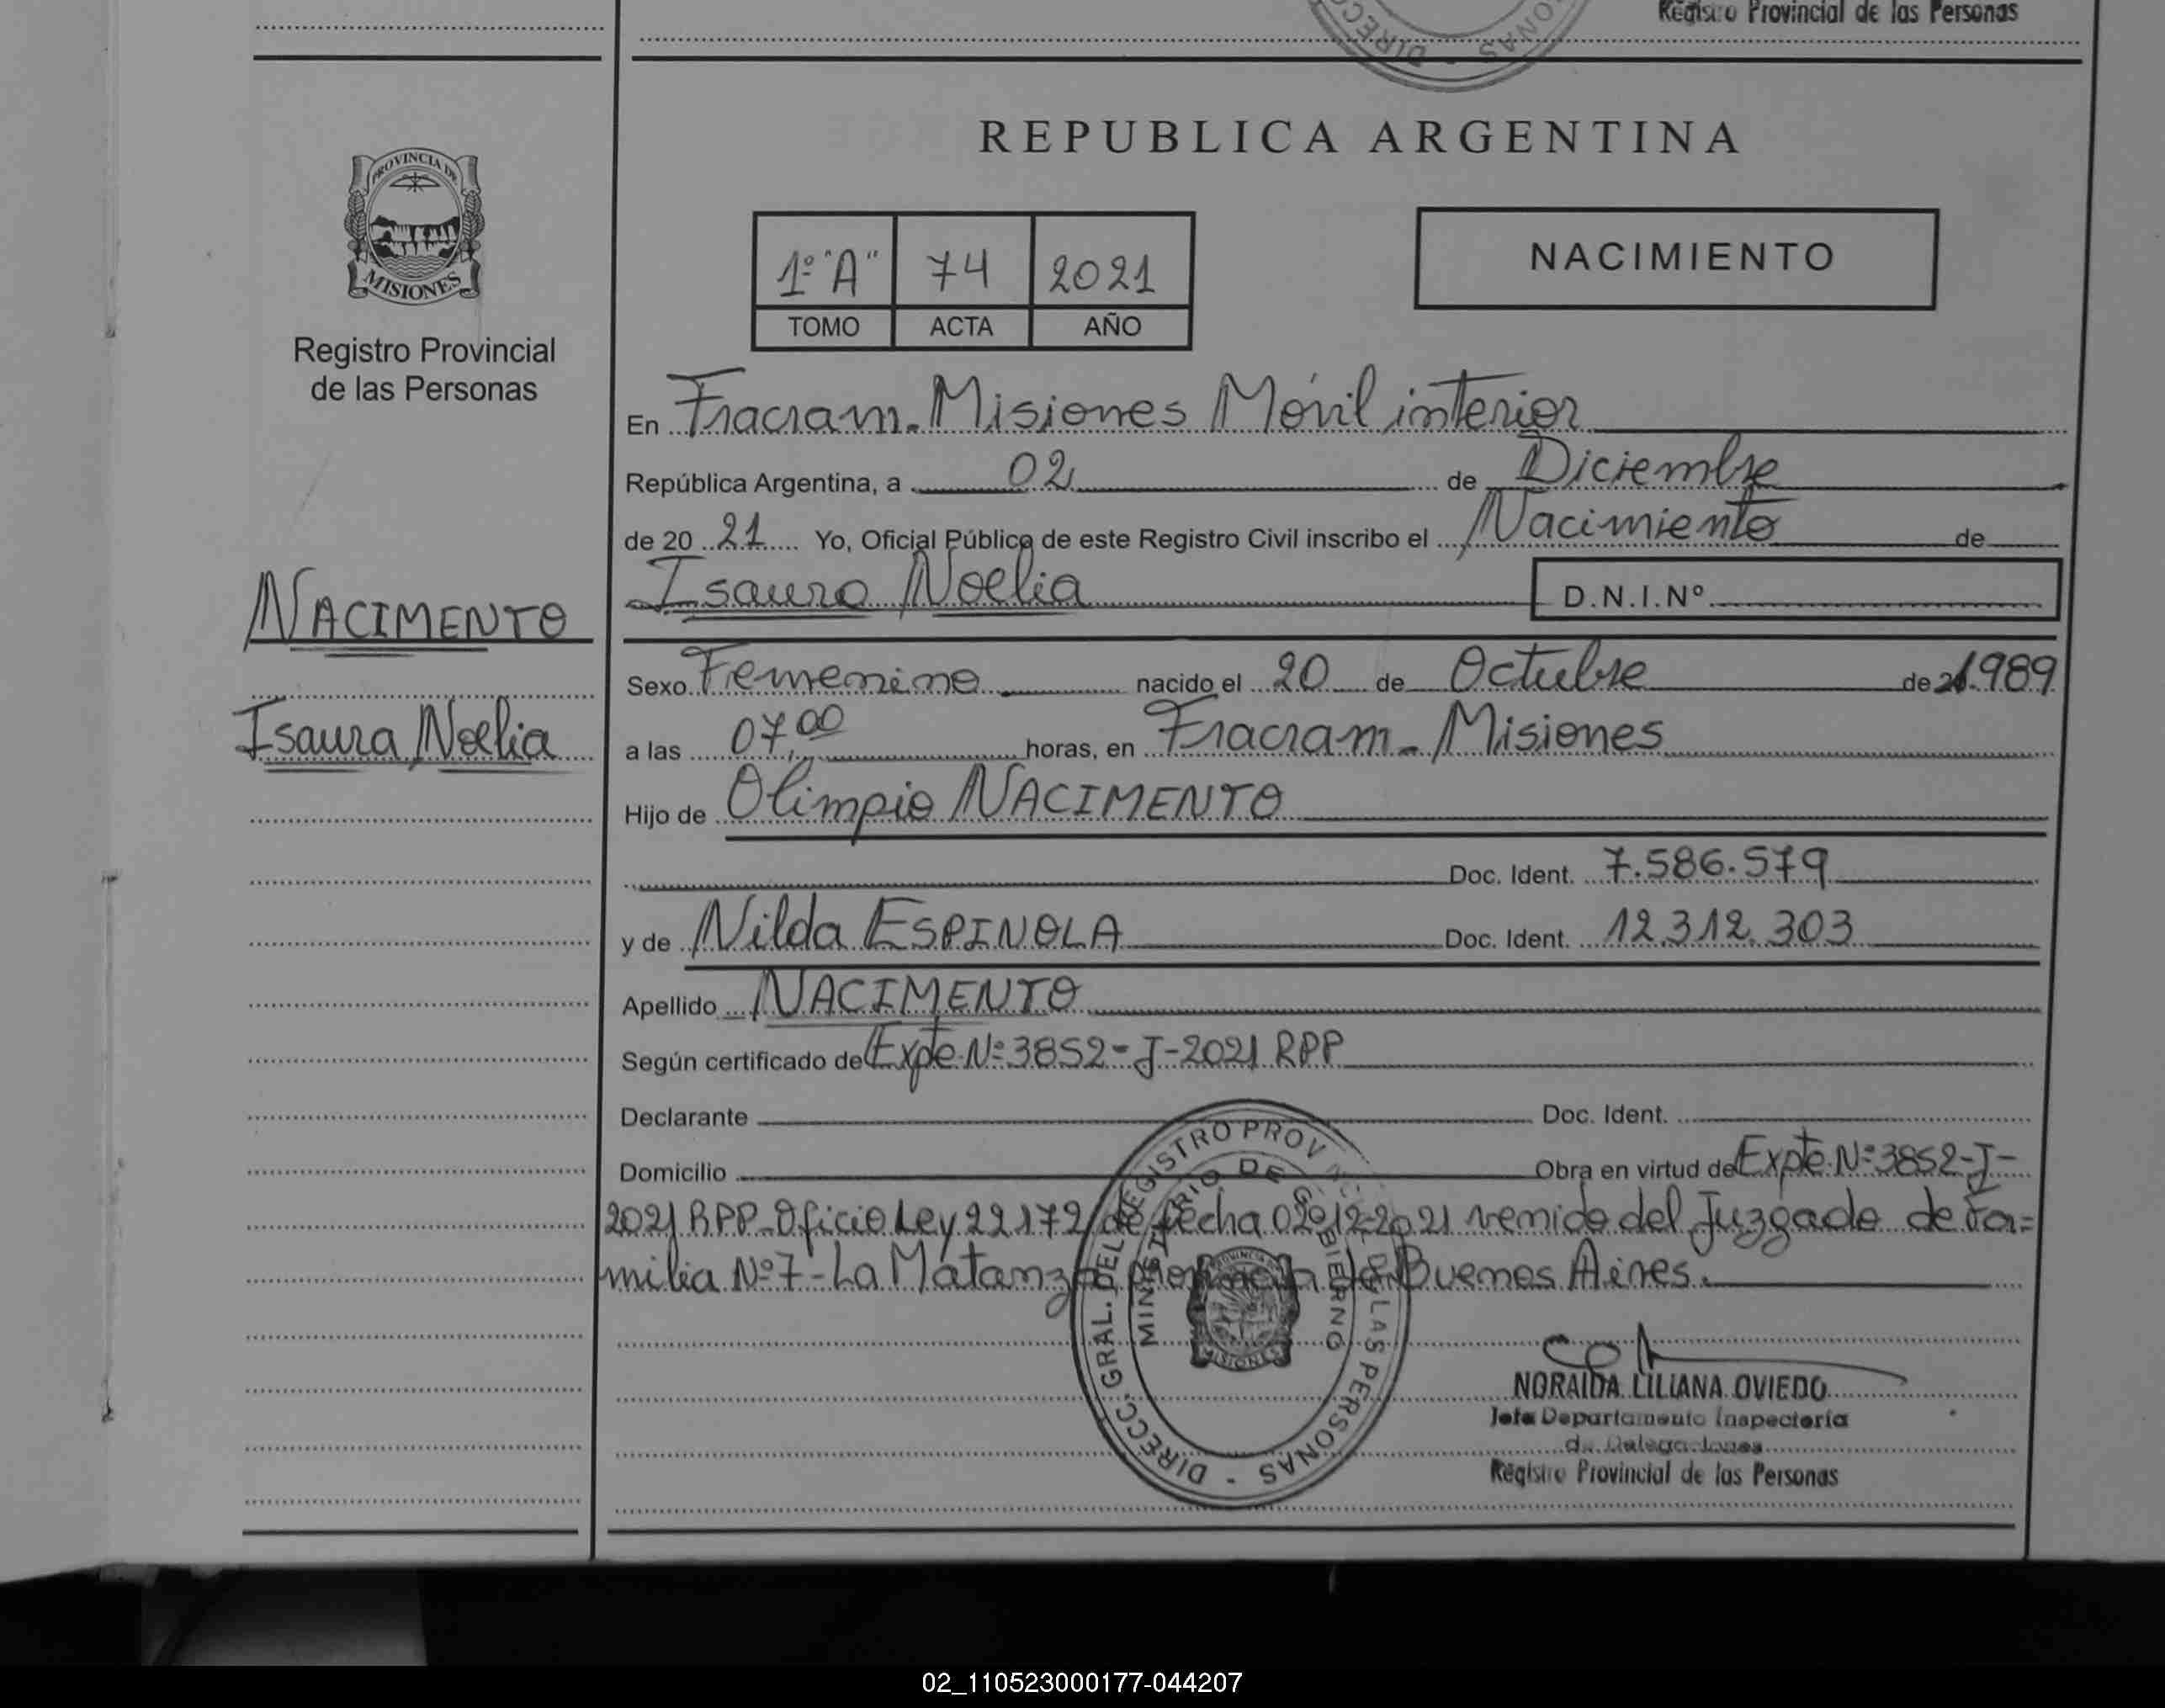 Registro Provincial de las Personas
DIRECC
ONAS
PROVINCIA DE
MISIONES
Registro Provincial
de las Personas
NACIMENTO
Isaura Noelia
REPUBLICA ARGENTINA
1º "A" 74 2021
TOMO ACTA AÑO
NACIMIENTO
En Fracram. Misiones Móvil interior
República Argentina, a 02 de Diciembre
de 20 21 Yo, Oficial Público de este Registro Civil inscribo el Nacimiento de
Isaura Noelia D.N.I.Nº
Sexo Femenino nacido el 20 de Octubre de 1989
a las 07,00 horas, en Fracram - Misiones
Hijo de Olimpio NACIMENTO
Doc. Ident. 7.586.579
y de Nilda ESPINOLA Doc. Ident. 12.312.303
Apellido NACIMENTO
Según certificado de Expte. Nº 3852-J-2021 RPP
Declarante Doc. Ident.
Domicilio Obra en virtud de Expte. Nº 3852-J-
2021 RPP-Oficio Ley 22172 de fecha 02-12-2021 venido del Juzgado de Fa=
milia Nº 7 - La Matanza Provincia de Buenos Aires.
DIRECC. GRAL. DEL REGISTRO PROV DE LAS PERSONAS -
MINISTERIO DE GOBIERNO
MISIONES
NORAIDA LILIANA OVIEDO
Jefa Departamento Inspectoría
de Delegaciones
Registro Provincial de las Personas
02_110523000177-044207